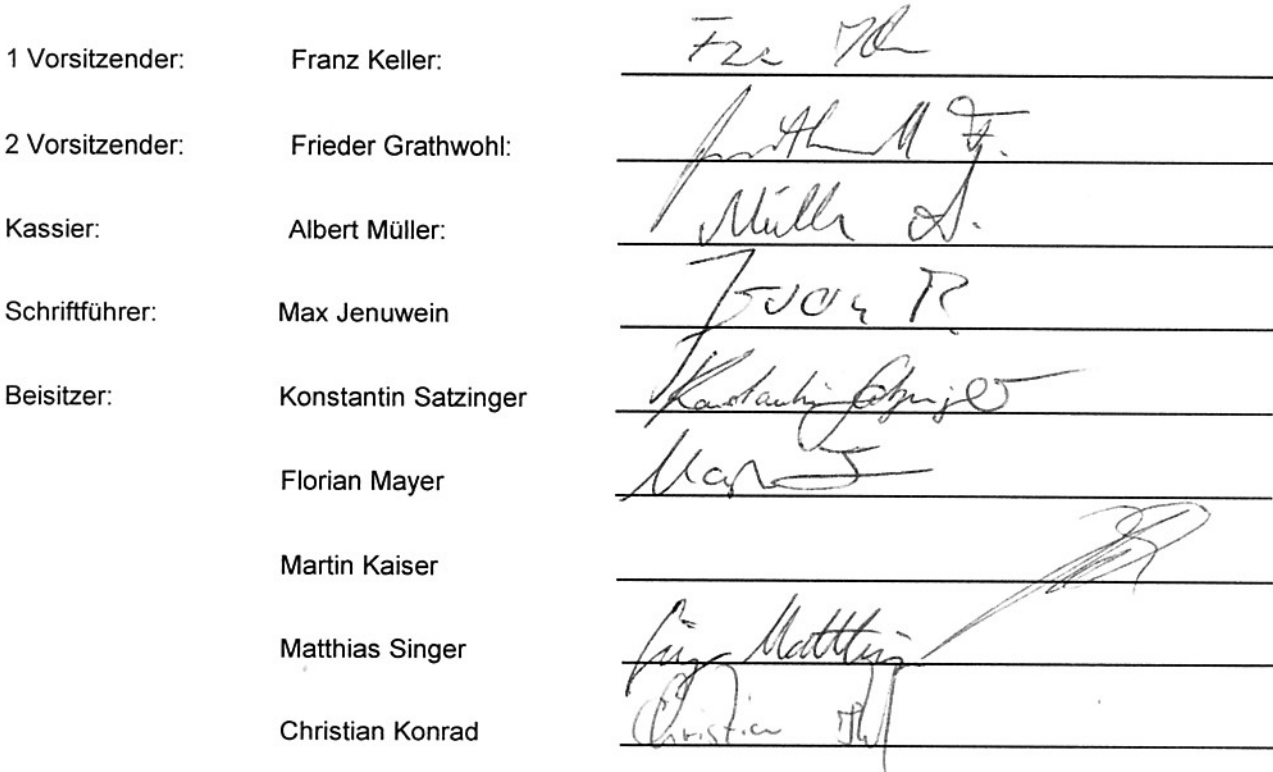 1 Vorsitzender: Franz Keller:
2 Vorsitzender: Frieder Grathwohl:
Kassier: Albert Müller: Müller A.
Schriftführer: Max Jenuwein
Beisitzer: Konstantin Satzinger Konstantin Satzinger
Florian Mayer
Martin Kaiser
Matthias Singer Matthias
Christian Konrad Christian